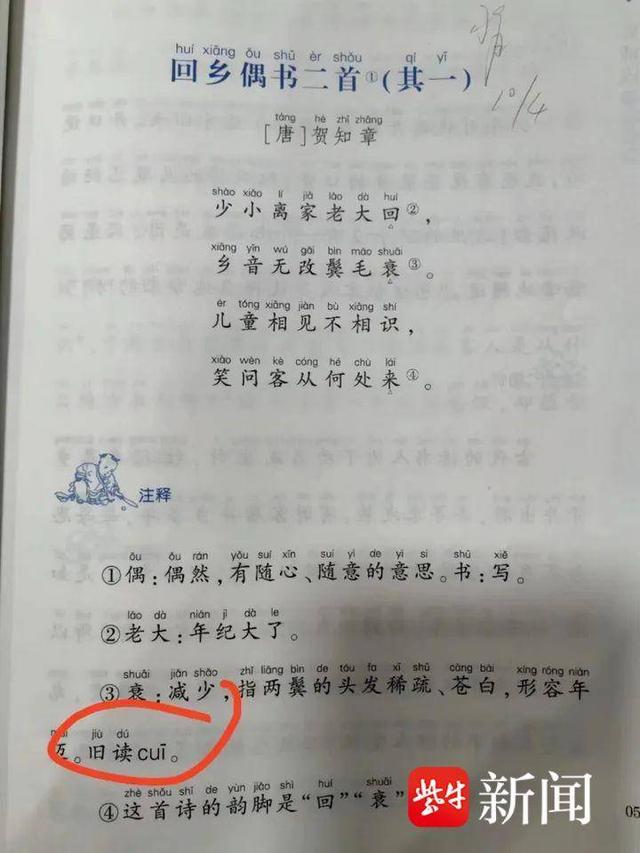 huí xiāng ǒu shū èr shǒu qí yī
回乡偶书二首①(其一)
10/4
táng hè zhī zhāng
[唐]贺知章
shào xiǎo lí jiā lǎo dà huí
少小离家老大回②，
xiāng yīn wú gǎi bìn máo shuāi
乡音无改鬓毛衰③。
ér tóng xiāng jiàn bù xiāng shí
儿童相见不相识，
xiào wèn kè cóng hé chù lái
笑问客从何处来④。
注释
ǒu ǒu rán yǒu suí xīn suí yì de yì si shū xiě
①偶：偶然，有随心、随意的意思。书：写。
lǎo dà nián jì dà le
②老大：年纪大了。
shuāi jiǎn shǎo zhǐ liǎng bìn de tóu fa xī shū cāng bái xíng róng nián
③衰：减少，指两鬓的头发稀疏、苍白，形容年
mài jiù dú
迈。旧读cuī。
zhè shǒu shī de yùn jiǎo shì huí shuāi
④这首诗的韵脚是“回”“衰”
紫牛新闻
05